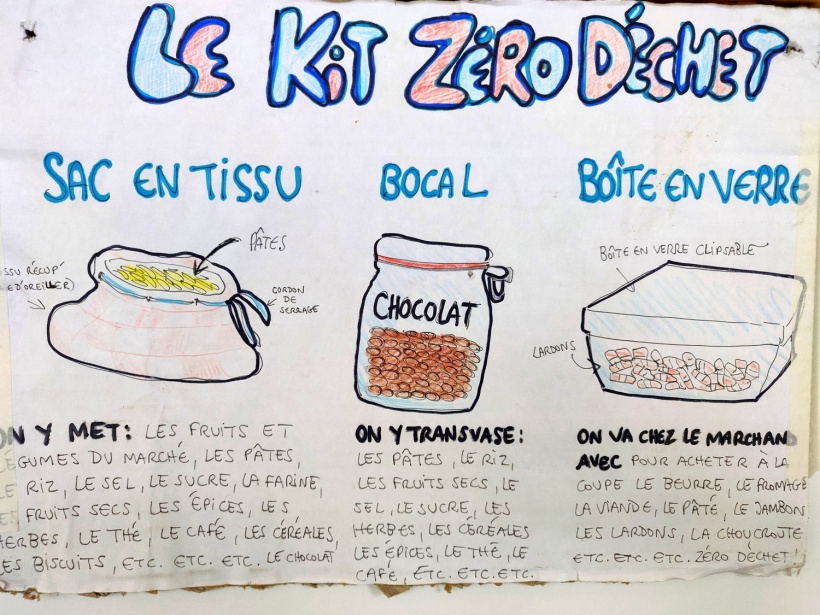 LE KIT ZÉRO DÉCHET
SAC EN TISSU
PÂTES
SSU RÉCUP'
E D'OREILLER)
CORDON
DE
SERRAGE
ON Y MET: LES FRUITS ET
ÉGUMES DU MARCHÉ, LES PÂTES,
LE RIZ, LE SEL, LE SUCRE, LA FARINE,
ES FRUITS SECS, LES ÉPICES, LES
HERBES, LE THÉ, LE CAFÉ, LES CÉRÉALES,
LES BISCUITS, ETC. ETC. ETC. LE CHOCOLAT
BOCAL
CHOCOLAT
ON Y TRANSVASE:
LES PÂTES, LE RIZ,
LES FRUITS SECS, LE
SEL, LE SUCRE, LES
HERBES, LES CÉRÉALES
LES ÉPICES, LE THÉ, LE
CAFÉ, ETC. ETC. ETC.
BOÎTE EN VERRE
BOÎTE EN VERRE CLIPSABLE
LARDONS
ON VA CHEZ LE MARCHAND
AVEC POUR ACHETER À LA
COUPE LE BEURRE, LE FROMAGE
LA VIANDE, LE PÂTÉ, LE JAMBON
LES LARDONS, LA CHOUCROUTE
ETC. ETC. ETC. ZÉRO DÉCHET!